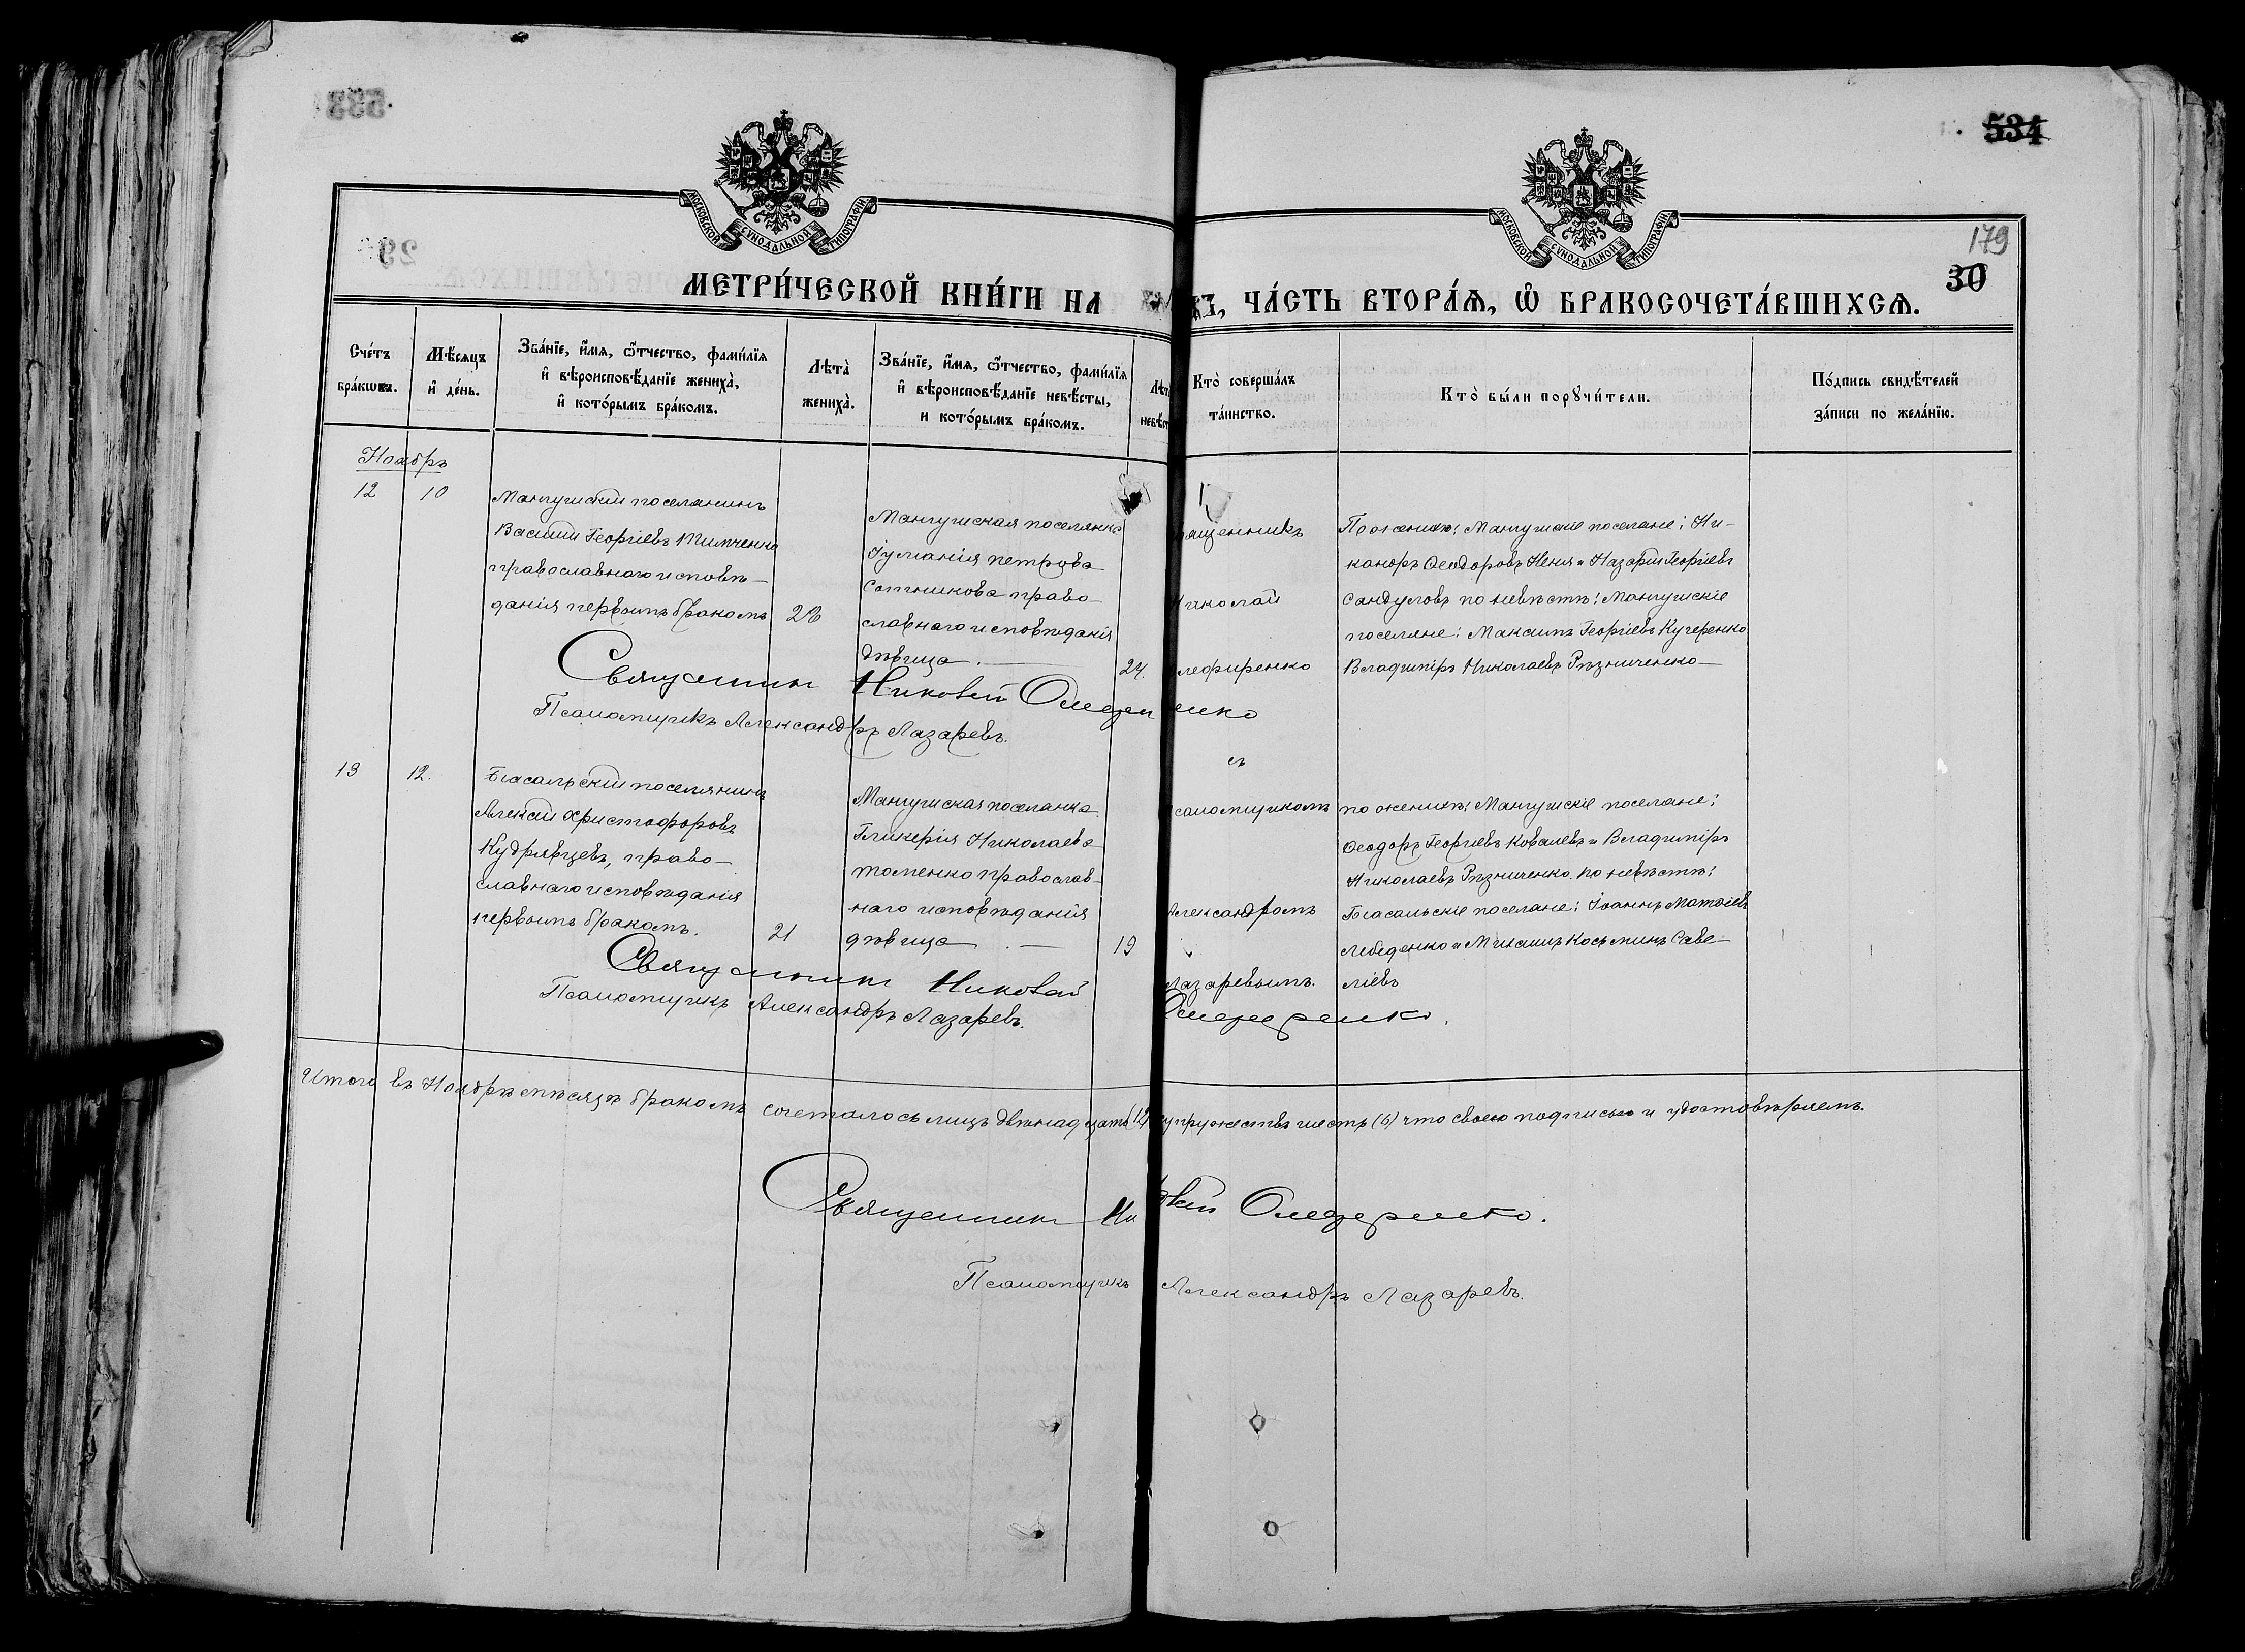 534
179
30
МОСКОВСКОЙ СѴНОДАЛЬНОЙ ТИПОГРАФІИ
МОСКОВСКОЙ СѴНОДАЛЬНОЙ ТИПОГРАФІИ
МЕТРИ́ЧЕСКОЙ КНИ́ГИ НА
ЧА́СТЬ ВТОРА́Ѧ, Ѽ БРАКОСОЧЕТА́ВШИХСѦ.
Сче́тъ
бра́кѡвъ.
Мѣ́сѧцъ
и҆ де́нь.
Зва́нїе, и҆́мѧ, ѻ҆́тчество, фами́лїѧ
и҆ вѣроисповѣ́данїе жениха̀,
и҆ кото́рымъ бра́комъ.
Лѣта̀
жениха̀.
Зва́нїе, и҆́мѧ, ѻ҆́тчество, фами́лїѧ
и҆ вѣроисповѣ́данїе невѣ́сты,
и кото́рымъ бра́комъ.
Кто̀ соверша́лъ
та́инство.
Кто̀ бы́ли порꙋчи́тели.
По́дпись свидѣ́телей
за́писи по жела́нїю.
Ноябрь
12
10
Мангушскій поселянинъ
Василій Георгіевъ Тимченко
православнаго исповѣ-
данія первымъ бракомъ
28
Мангушская поселянка
Іуліанія Петрова
Сотникова право-
славнаго исповѣданія
дѣвица.
24.
Николай
По женихѣ: Мангушскіе поселяне: Ни-
каноръ Ѳеодоровъ Кеня и Назарій Георгіевъ
Сандуловъ по невѣстѣ: Мангушскіе
поселяне: Максимъ Георгіевъ Кучеренко
Владиміръ Николаевъ Рѣзниченко
Священникъ Николай
Псаломщикъ Александръ Лазаревъ.
съ
13
12.
поселянинъ
Алексій Христофоровъ
Кудрявцевъ, право-
славнаго исповѣданія
первымъ бракомъ.
21
Мангушская поселянка
Гликерія Николаева
Томенко православ-
наго исповѣданія
дѣвица.
19
Александромъ
Лазаревымъ.
по женихѣ: Мангушскіе поселяне:
Ѳеодоръ Георгіевъ Ковалевъ и Владиміръ
Николаевъ Рѣзниченко. по невѣстѣ:
поселяне: Іоаннъ Матѳіевъ
Лебеденко и Михаилъ Косьминъ Саве-
ліевъ
Священникъ Николай
Псаломщикъ Александръ Лазаревъ.
Итого въ Ноябрѣ мѣсяцѣ бракомъ сочеталось лицъ двѣнадцать (12) супружествъ шесть (6) что своею подписью и удостовѣряемъ.
Священникъ
Псаломщикъ Александръ Лазаревъ.